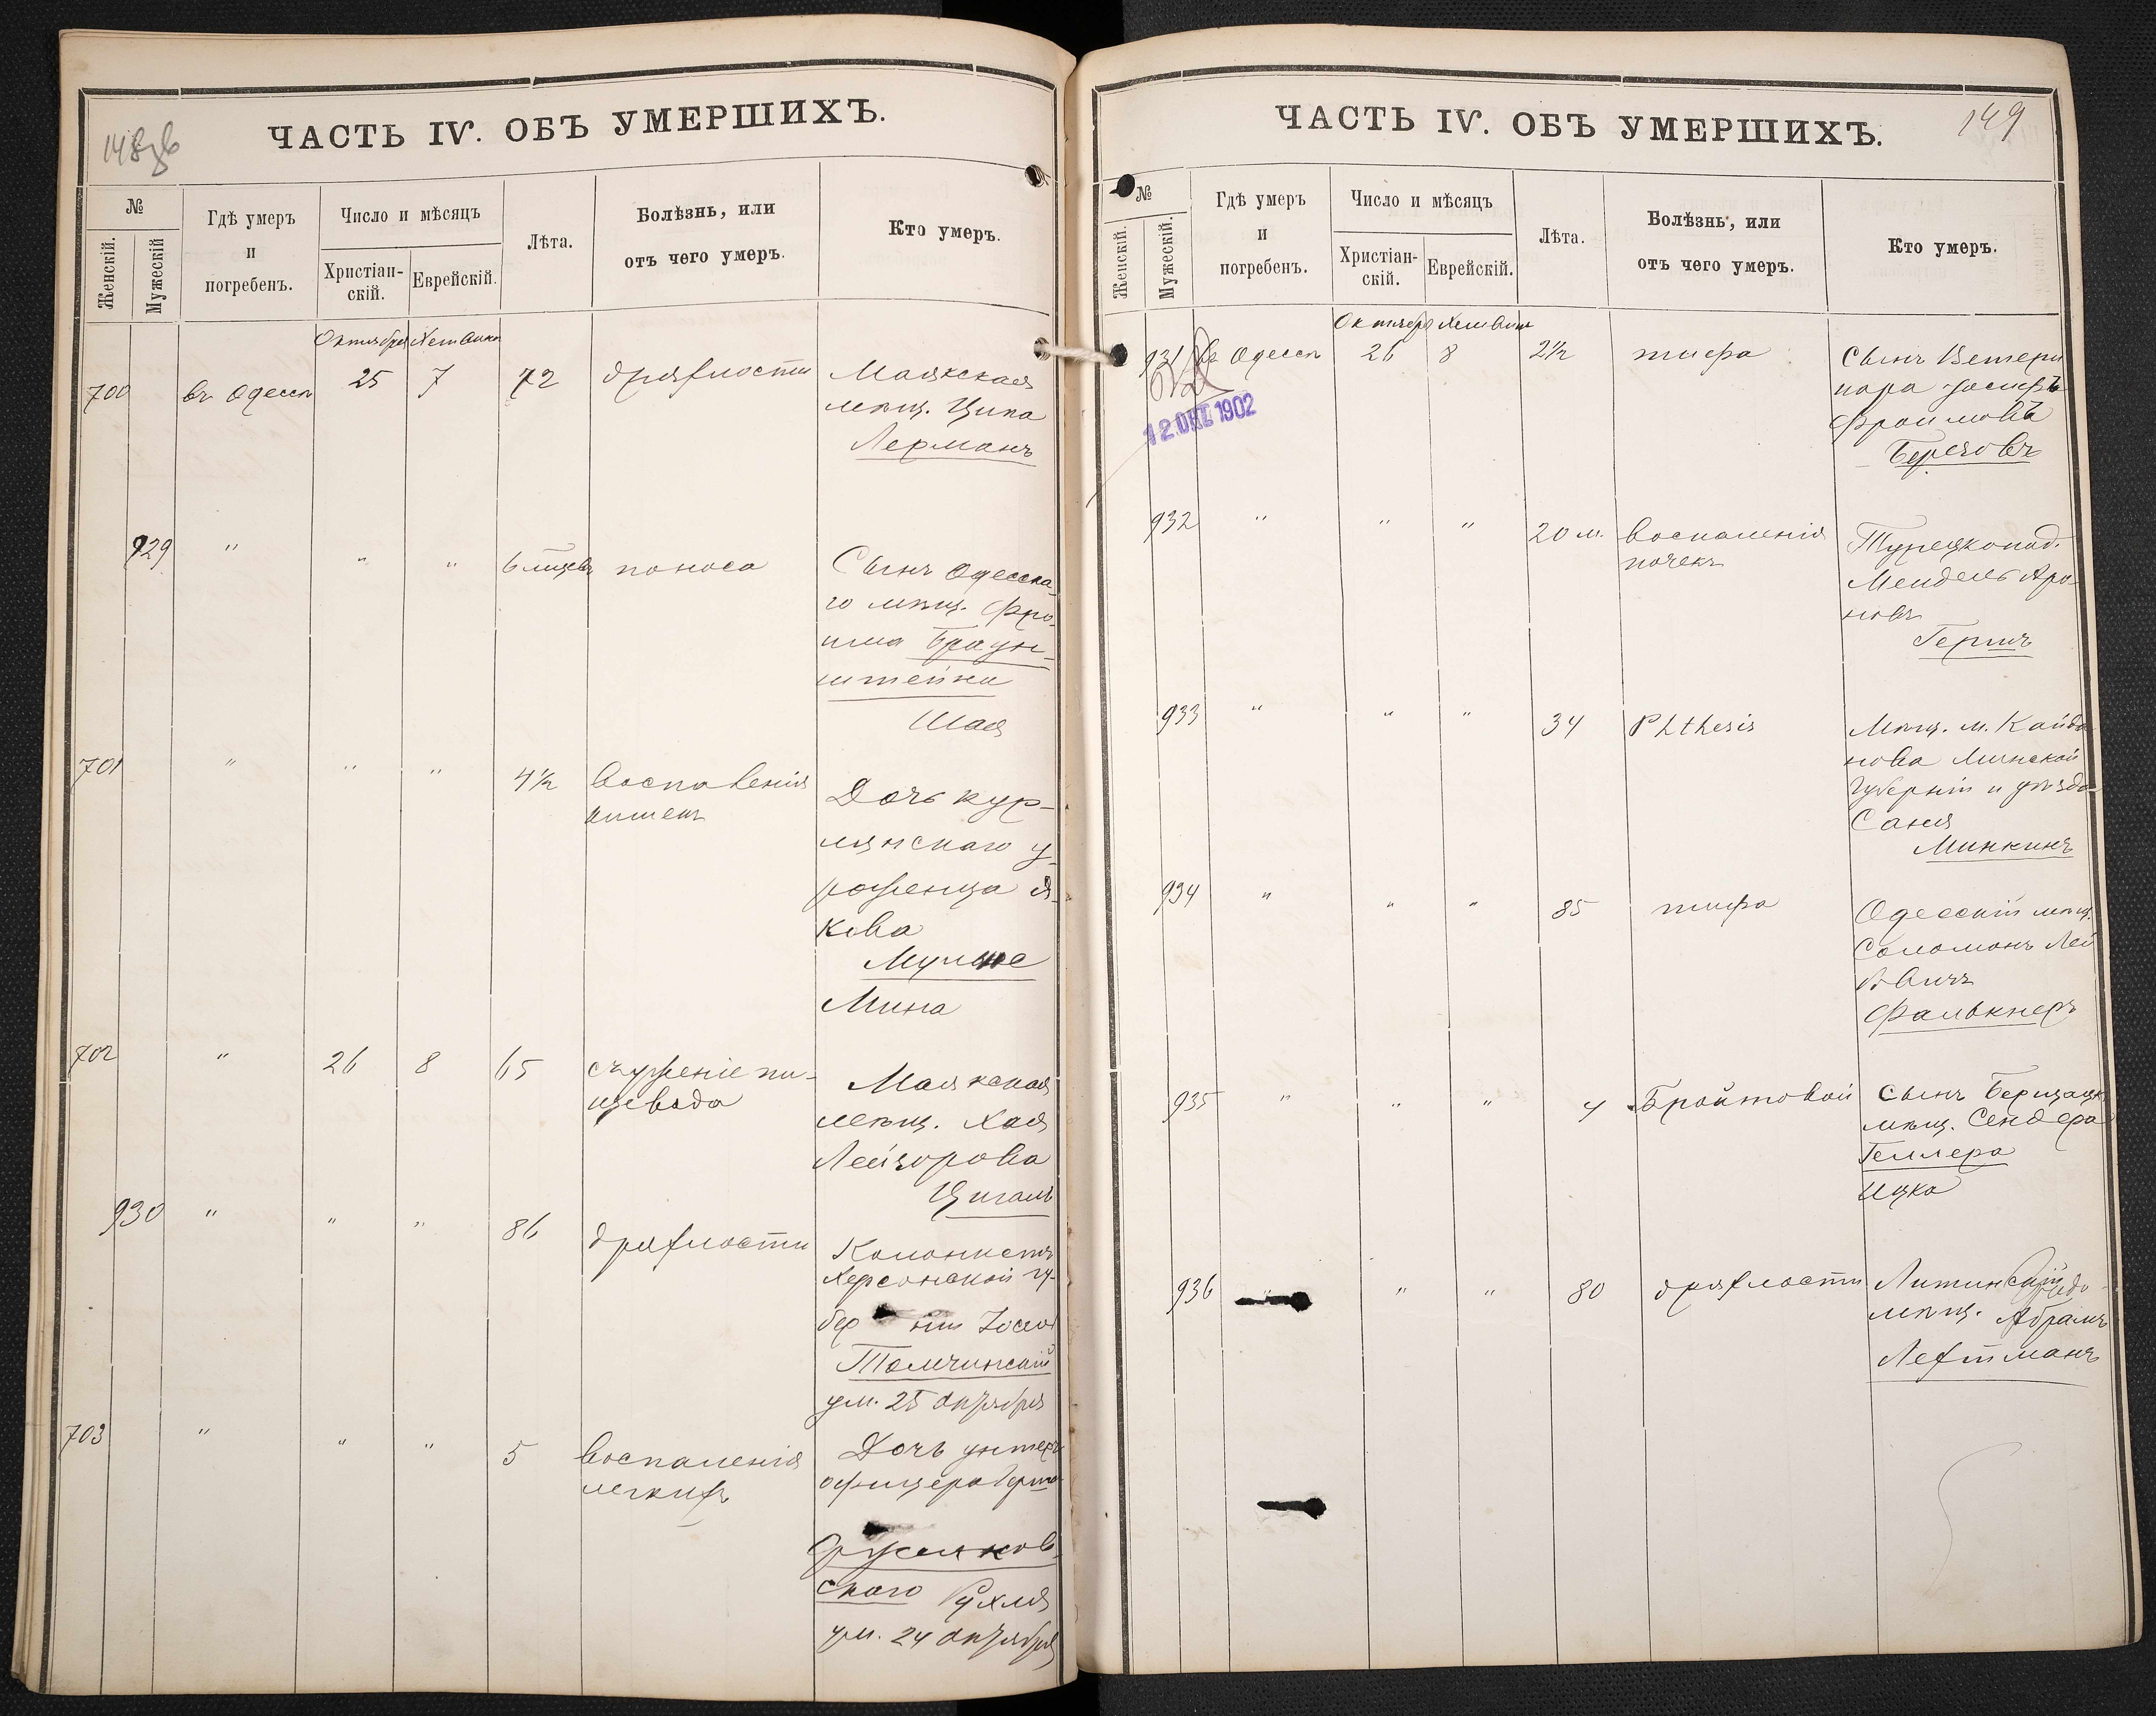 ЧАСТЬ IV. ОБЪ УМЕРШИХЪ.
№
Женскій.
Мужескій
Гдѣ умеръ
и
погребенъ.
Число и мѣсяцъ
Христіан-
скій.
Еврейскій.
Лѣта.
Болѣзнь, или
отъ чего умеръ.
Кто умеръ.
Октября Хешвана
700 въ Одессѣ 25 7 72 дряхлости Маякская
мѣщ. Ципа
Лерманъ
929 " " " поноса Сынъ Одесска-
го мѣщ. Фро-
има Браун-
штейна
Шая
701 " " " 4½ воспаленія Дочь кур-
кишекъ
лянскаго у-
роженца Я-
кова
Мульше
Мина
702 " 26 8 65 съуженіе пи- Маякская
щевода
мѣщ. Хая
Лейзорова
Цигаль
930 " " " 86 дряхлости Колонистъ
Херсонской гу-
бер ніи
Толчинскій
ум. 25 октября
703 " " " 5 воспаленія Дочь унтеръ
легкихъ
офицера
скаго Рухля
ум. 24 октября
ЧАСТЬ IV. ОБЪ УМЕРШИХЪ.
149
№
Женскій.
Мужескій.
Гдѣ умеръ
и
погребенъ.
Число и мѣсяцъ
Христіан-
скій.
Еврейскій.
Лѣта.
Болѣзнь, или
отъ чего умеръ.
Кто умеръ.
Октября Хешвана
931 въ Одессѣ 26 8 2½ тифа Сынъ Ветери
нара
Фроимовъ
Березовъ
12 ОКТ 1902
932 " " " 20 м. воспаленія Турецкопод.
почекъ
Мендель Аро-
новъ
Гершъ
933 " " " 34 Phthesis Мѣщ. м. Кайда
нова Минской
губерніи и уѣзда
Саня
Минкинъ
934 " " " 85 тифа Одесскій мѣщ.
Соломонъ Лей
бовичъ
Фалькнеръ
935 " " " 4 Брайтовой Сынъ
мѣщ. Сендера
Геллера
Ицко
936 " " " 80 дряхлости
мѣщ. Абрамъ
Лехтманъ